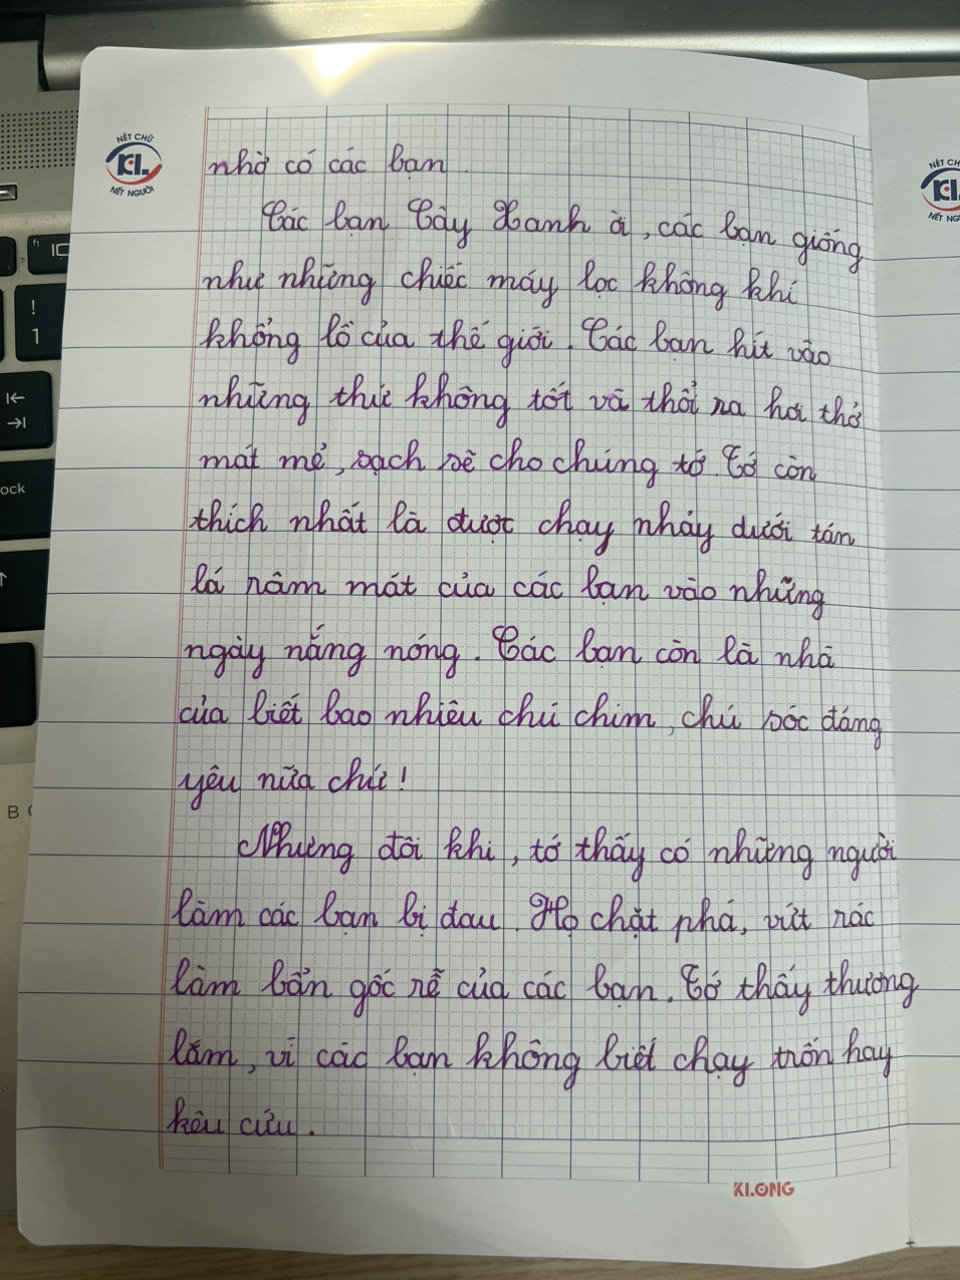 NÉT CHỮ
KL
NẾT NGƯỜI
nhờ có các bạn.
Các bạn Cây Xanh ơi, các bạn giống
như những chiếc máy lọc không khí
khổng lồ của thế giới. Các bạn hít vào
những thứ không tốt và thổi ra hơi thở
mát mẻ, sạch sẽ cho chúng tớ. Tớ còn
thích nhất là được chạy nhảy dưới tán
lá râm mát của các bạn vào những
ngày nắng nóng. Các bạn còn là nhà
của biết bao nhiêu chú chim, chú sóc đáng
yêu nữa chứ!
Nhưng đôi khi, tớ thấy có những người
làm các bạn bị đau. Họ chặt phá, vứt rác
làm bẩn gốc rễ của các bạn. Tớ thấy thương
lắm, vì các bạn không biết chạy trốn hay
kêu cứu.
KLONG
!
1
ock
B